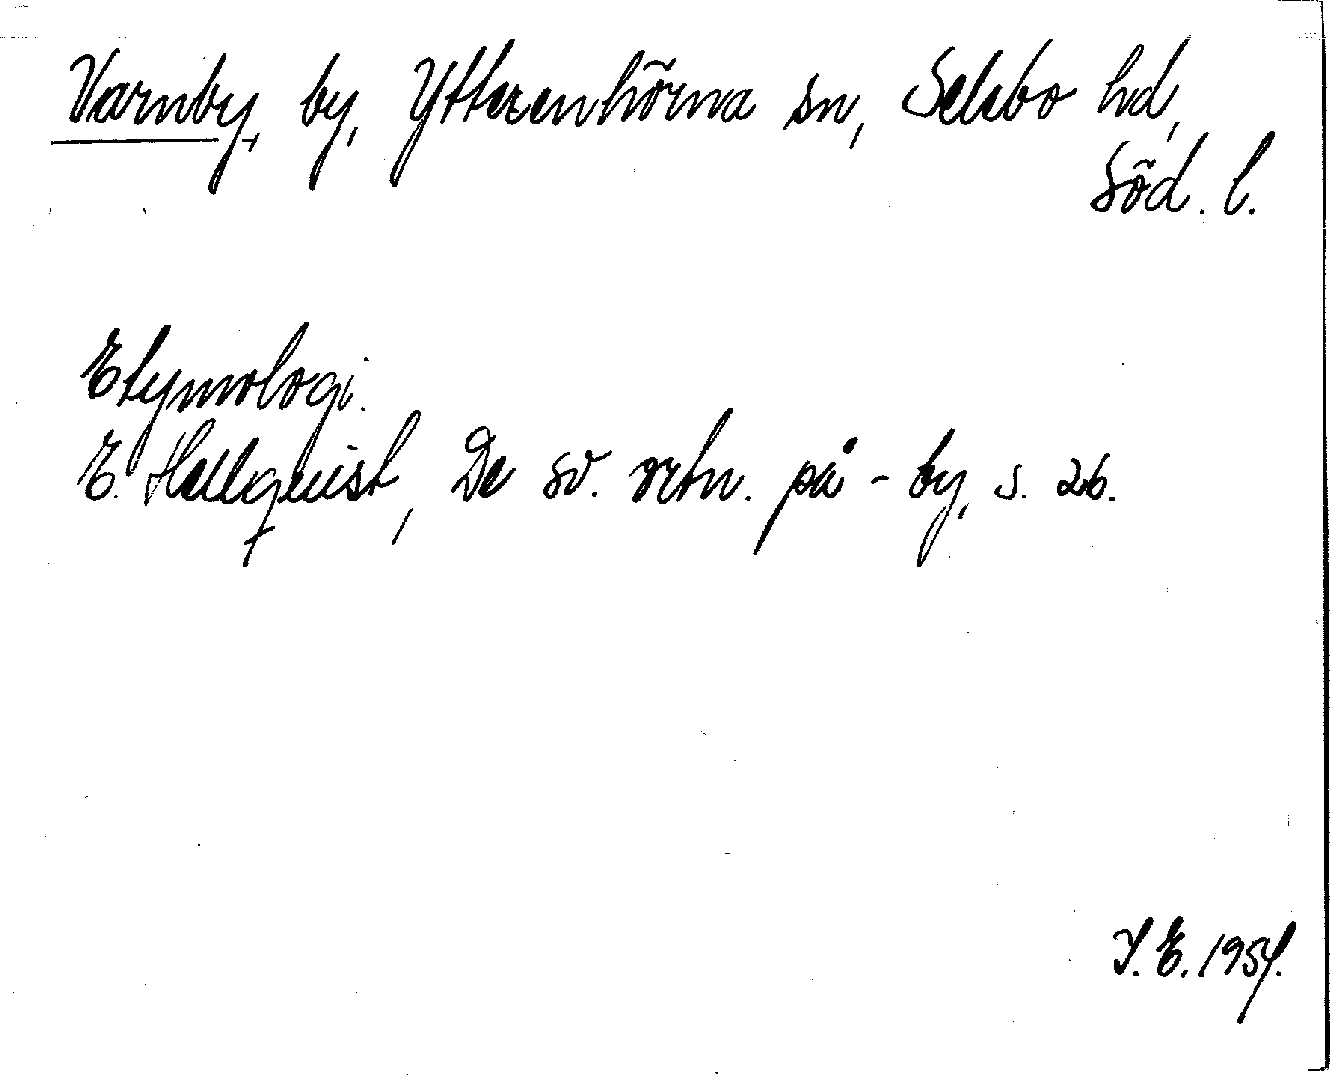 Varnby, by, Ytterenhörna sn, Selebo hd,
Söd. l.
Etymologi.
E. Hellquist, De sv. ortn. på -by, s. 26.
I. E. 1954.